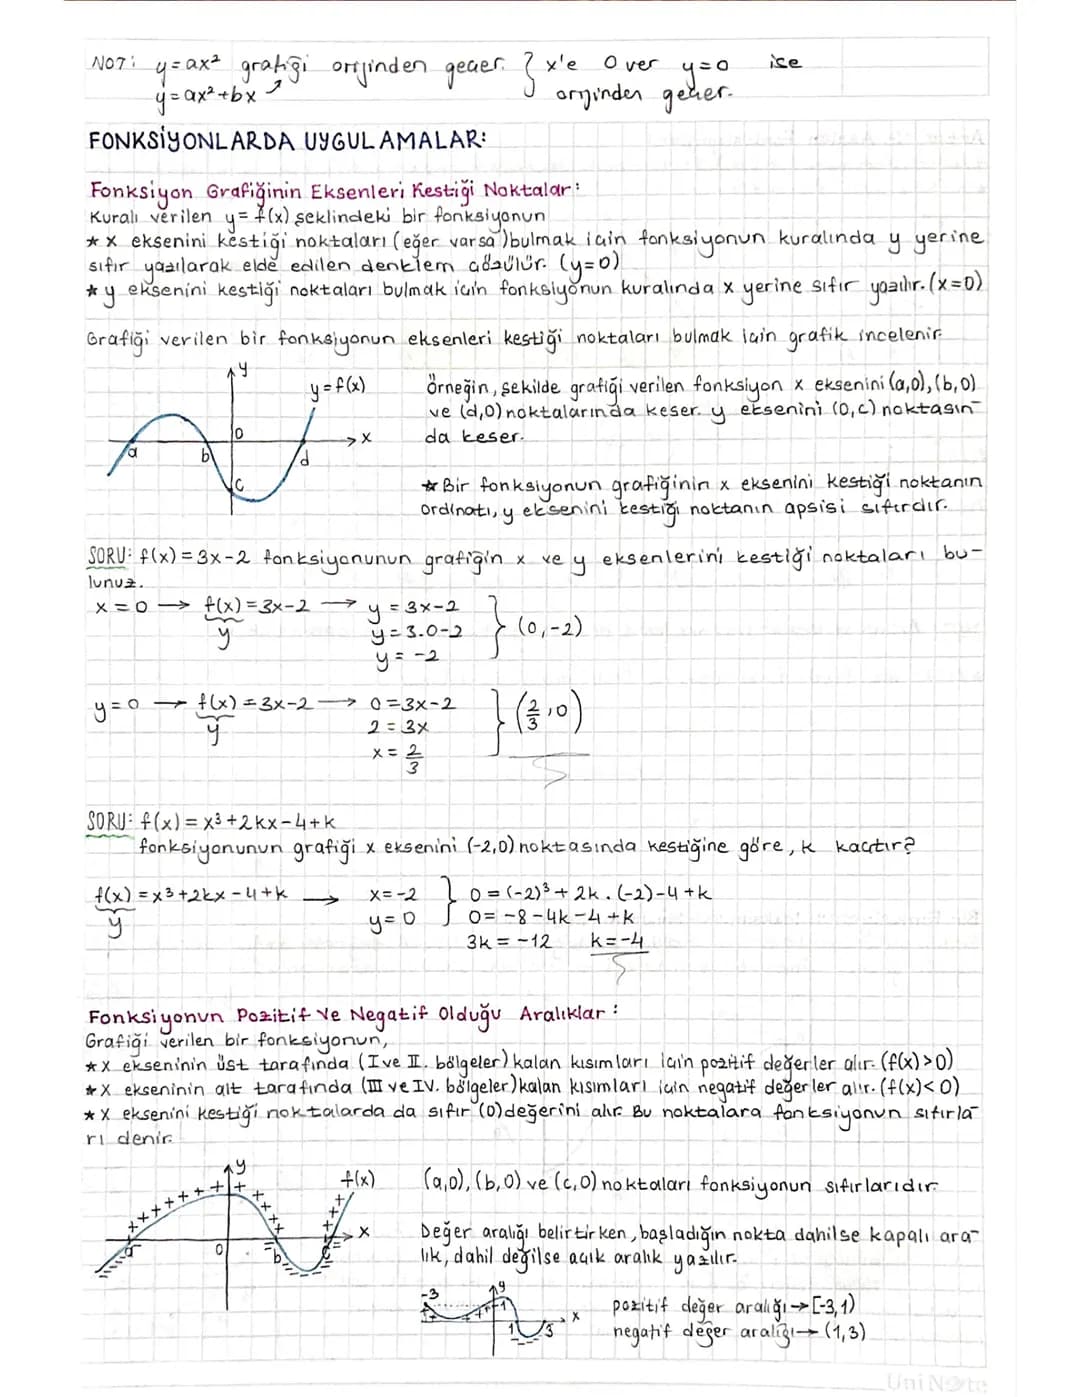 NOT: y=ax² grafiği orijinden geçer. } x'e 0 ver y=0 ise
y=ax²+bx orijinden geçer.
FONKSİYONLARDA UYGULAMALAR:
Fonksiyon Grafiğinin Eksenleri Kestiği Noktalar:
Kuralı verilen y=f(x) şeklindeki bir fonksiyonun
★ x eksenini kestiği noktaları (eğer varsa) bulmak için fonksiyonun kuralında y yerine
sıfır yazılarak elde edilen denklem çözülür. (y=0)
★ y eksenini kestiği noktaları bulmak için fonksiyonun kuralında x yerine sıfır yazılır. (x=0)
Grafiği verilen bir fonksiyonun eksenleri kestiği noktaları bulmak için grafik incelenir.
y
y=f(x)
0
x
a
b
d
c
Örneğin, şekilde grafiği verilen fonksiyon x eksenini (a,0), (b,0)
ve (d,0) noktalarında keser. y eksenini (0,c) noktasın-
da keser.
★ Bir fonksiyonun grafiğinin x eksenini kestiği noktanın
ordinatı, y eksenini kestiği noktanın apsisi sıfırdır.
SORU: f(x)=3x-2 fonksiyonunun grafiğin x ve y eksenlerini kestiği noktaları bu-
lunuz.
x=0 → f(x)=3x-2 → y=3x-2
y y=3.0-2 } (0,-2)
y=-2
y=0 → f(x)=3x-2 → 0=3x-2
y 2=3x } (2/3,0)
x=2/3
SORU: f(x)=x³+2kx-4+k
fonksiyonunun grafiği x eksenini (-2,0) noktasında kestiğine göre, k kaçtır?
f(x)=x³+2kx-4+k → x=-2 } 0=(-2)³+2k.(-2)-4+k
y y=0 0=-8-4k-4+k
3k=-12 k=-4
Fonksiyonun Pozitif Ve Negatif Olduğu Aralıklar:
Grafiği verilen bir fonksiyonun,
★ x ekseninin üst tarafında (I ve II. bölgeler) kalan kısımları için pozitif değerler alır. (f(x)>0)
★ x ekseninin alt tarafında (III ve IV. bölgeler) kalan kısımları için negatif değerler alır. (f(x)<0)
★ x eksenini kestiği noktalarda da sıfır (0) değerini alır. Bu noktalara fonksiyonun sıfırla-
rı denir.
y
f(x)
x
a
0
b
c
(a,0), (b,0) ve (c,0) noktaları fonksiyonun sıfırlarıdır.
Değer aralığı belirtirken, başladığın nokta dahilse kapalı ara-
lık, dahil değilse açık aralık yazılır.
-3
y
x
1
3
pozitif değer aralığı → [-3,1)
negatif değer aralığı → (1,3)
UniNote